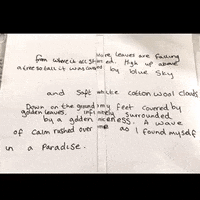 More leaves are falling
from where it all started. High up above
a tree so tall it was covered by blue sky
and soft white cotton wool clouds
Down on the ground my feet covered by
golden leaves. Infinitely surrounded
by a golden niceness. A wave
of calm rushed over me as I found myself
in a Paradise.